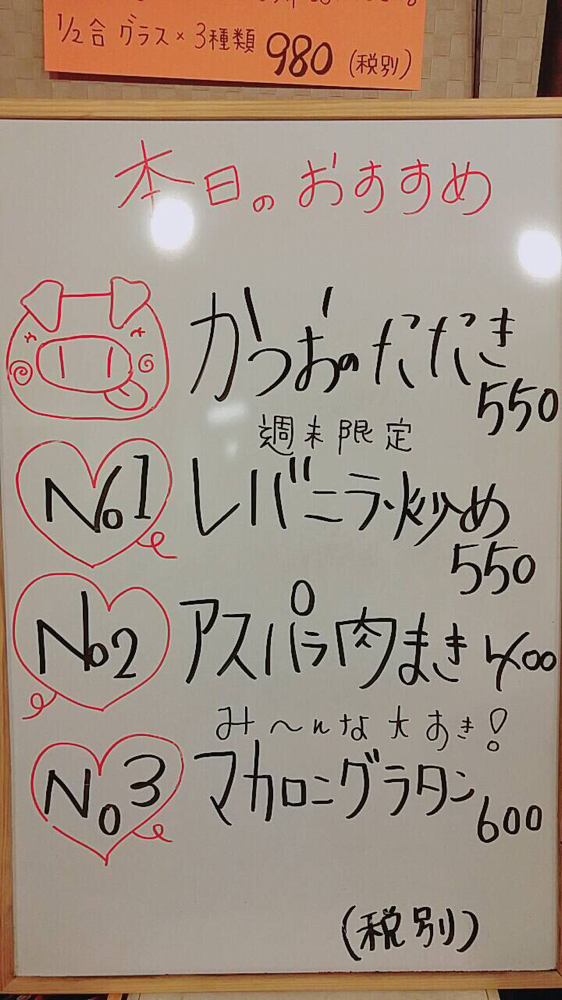 1/2合 グラス×3種類 980 (税別)
本日のおすすめ
かつおのたたき
550
週末限定
No1 レバニラ炒め
550
No2 アスパラ肉まき 400
み〜んな大おき!
No3 マカロニグラタン
600
(税別)